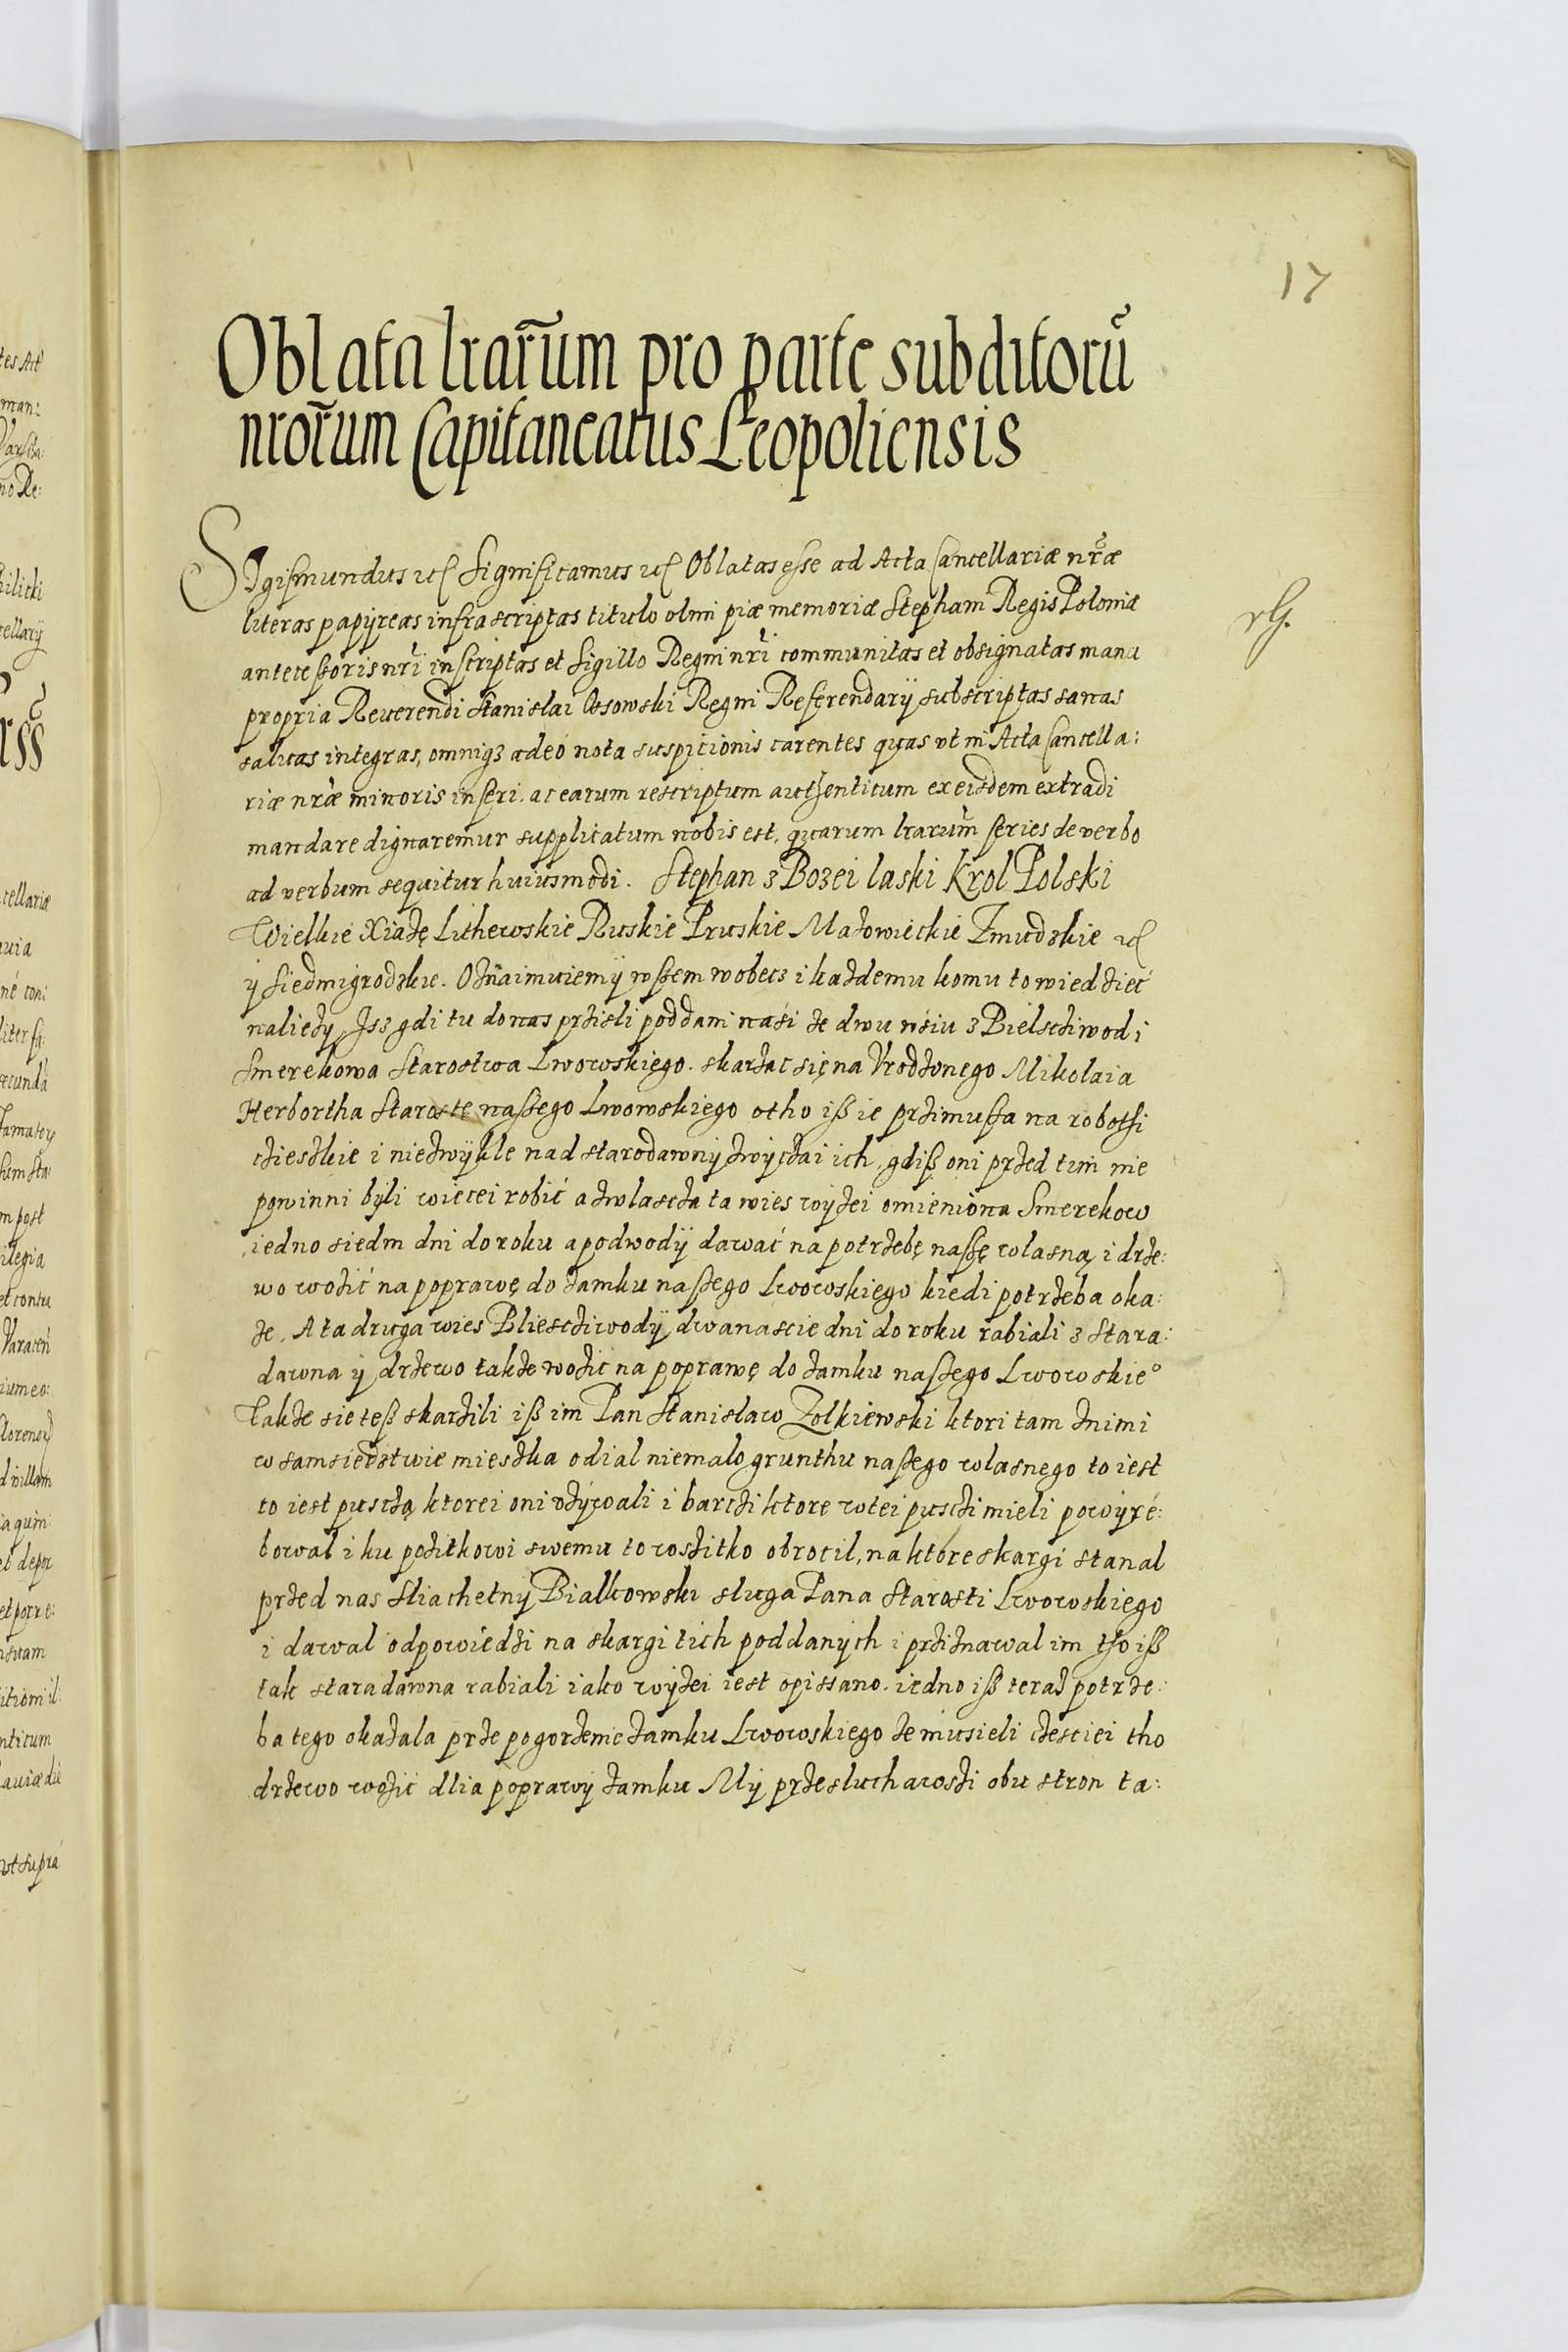 17
Oblata lrarum pro parte subditorũ
nrorum Capitaneatus Leopoliensis
Sigismundus etc Significamus etc Oblatas esse ad Acta Cancellariæ nræ
literas papÿreas infrascriptas titulo olim piæ memoriæ Stephani Regis Poloniæ
antecessoris nri inscriptas et sigillo Regni nri communitas et obsignatas manu
propria Reuerendi Stanislai Ossowski Regni Referendarÿ subscriptas sanas
saluas integras, omniq3 adeo nota suspicionis carentes quas vt in Acta Cancella:
riæ nræ minoris inseri. ac earum rescriptum authenticum ex eisdem extradi
mandare dignaremur supplicatum nobis est, quarum lrarum series de verbo
ad verbum sequitur huiusmodi. Stephan z Bozei laski Krol Polski
Wielkie Xiążę Lithewskie Ruskie Pruskie Mazowieckie Zmudzkie etc
ÿ Siedmigrodzkie. Oznaimuiemÿ wssem wobecz i kazdemu komu to wiedziec
naliezy Isz gdi tu do nas przisli poddani nasi ze dwu wsiu z Bielscziwod i
Smerekowa Starostwa Lwowskiego. skarzac się na Vrodzonego Mikolaia
Herbortha Staroste nassego Lwowskiego otho iß ie przimussa na robothi
cziezkie i niezwÿkle nad starodawnÿ zwÿczai ich, gdiß oni przed tim nie
powinni bÿli wiecei robić a zwlascza ta wies wÿzei omieniona Smerekow
iedno siedm dni do roku a podwodÿ dawać na potrzebę nassę wlasną i drze:
wo wozić na poprawę do zamku nassego Lwowskiego kiedi potrzeba oka:
ze. A ta druga wies Bliescziwodÿ dwanascie dni do roku rabiali z stara:
dawna ÿ drzewo takze wozic na poprawę do zamku nassego Lwowskieº
Takze sie teß skarzili iß im Pan Stanislaw Zolkiewski ktori tam znimi
w samsiedstwie mieszka odial niemalo grunthu nassego wlasnego to iest
to iest puszczą ktorei oni vzÿwali i barczi ktore wtei pusczi mieli powÿre:
bowal i ku pozitkowi swemu to wszitko obrocil, na ktore skargi stanal
przed nas Sliachetnÿ Bialkowski sluga Pana Starosti Lwowskiego
i dawal odpowiedzi na skargi tich poddanÿch i prziznawal im tho iß
tak staradawna rabiali iako wÿzei iest opissano. iedno iß teraz potrze:
ba tego okazala prze pogorzenie zamku Lwowskiego ze musieli czesciei tho
drzewo wozic dlia poprawÿ zamku Mÿ przesluchawszi obu stron ta: